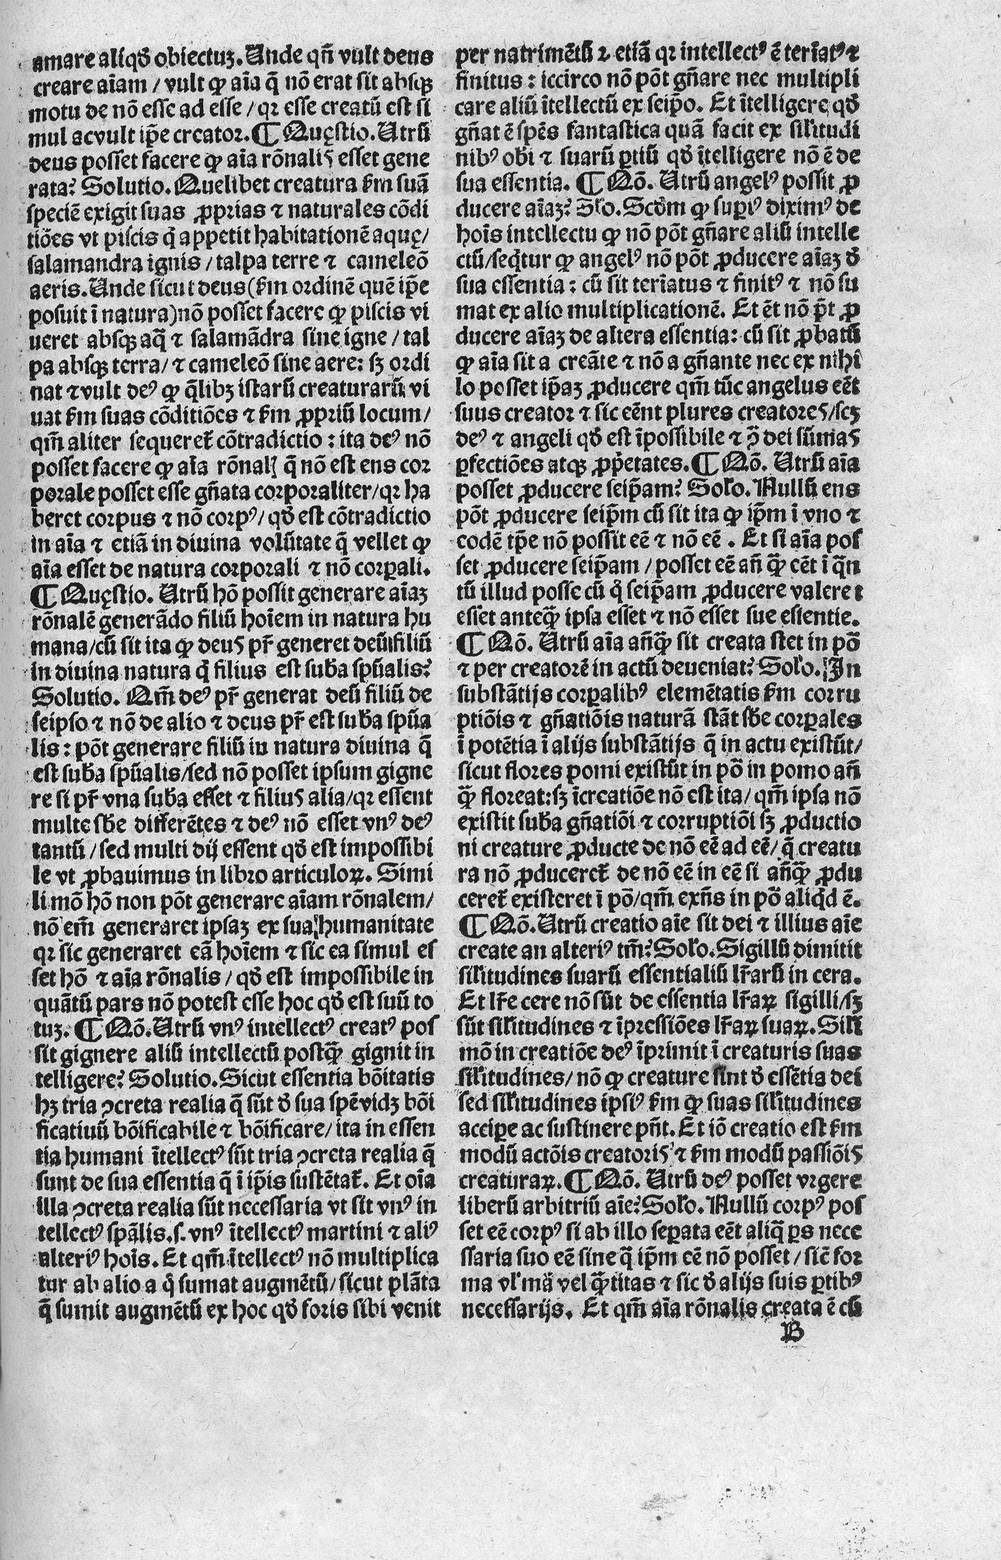 amare aliqđ obiectuꝫ. Unde qñ vult deus
creare aīam / vult ꝙ aīa q̄ nō erat sit absqꝫ
motu de nō esse ad esse / qꝛ esse creatū est si
mul ac vult ip̄e creator. ¶ Quęstio. Utrū
deus posset facere ꝙ aīa rōnalis esset gene
rata? Solutio. Quelibet creatura ẜm suā
speciē exigit suas ꝓprias ⁊ naturales cōdi
tiōes vt piscis q̄ appetit habitationē aquę /
salamandra ignis / talpa terre ⁊ cameleō
aeris. Unde sicut deus (ẜm ordinē quē ip̄e
posuit ī natura) nō posset facere ꝙ piscis vi
ueret absqꝫ aq̄ ⁊ salamādra sine igne / tal
pa absqꝫ terra / ⁊ cameleō sine aere: sꝫ ordi
nat ⁊ vult deꝰ ꝙ q̄libꝫ istarū creaturarū vi
uat ẜm suas cōditiōes ⁊ ẜm ꝓpriū locum /
qm̄ aliter sequeret̄ cōtradictio: ita deꝰ nō
posset facere ꝙ aīa rōnalꝭ q̄ nō est ens cor
porale posset esse gn̄ata corporaliter / qꝛ ha
beret corpus ⁊ nō corpꝰ / qđ est cōtradictio
in aīa ⁊ etiā in divina volūtate q̄ vellet ꝙ
aīa esset de natura corporali ⁊ nō corꝑali.
¶ Quęstio. Utrū hō possit generare aīaꝫ
rōnalē generādo filiū hoīem in natura hu
mana / cū sit ita ꝙ deus pr̄ generet deū filiū
in divina natura q̄ filius est suba spūalis?
Solutio. Qm̄ deꝰ pr̄ generat deū filiū de
seipso ⁊ nō de alio ⁊ deus pr̄ est suba spūa
lis: pōt generare filiū in natura divina q̄
est suba spūalis / sed nō posset ipsum gigne
re si pr̄ vna suba esset ⁊ filius alia / qꝛ essent
multe sbe differētes ⁊ deꝰ nō esset vnꝰ deꝰ
tantū / sed multi dij essent qđ est impossibi
le vt ꝓbavimus in libro articuloꝝ. Simi
li mō hō non pōt generare aīam rōnalem /
nō em̄ generaret ipsaꝫ ex sua humanitate
qꝛ sic generaret eā hoīem ⁊ sic ea simul es
set hō ⁊ aīa rōnalis / qđ est impossibile in
quātū pars nō potest esse hoc qđ est suū to
tuꝫ. ¶ Qō. Utrū vnꝰ intellectꝰ creatꝰ pos
sit gignere aliū intellectū postq̄ꝫ gignit in
telligere? Solutio. Sicut essentia bōitatis
hꝫ tria ꝯcreta realia q̄ sūt đ sua spē vidꝫ bōi
ficativū bōificabile ⁊ bōificare / ita in essen
tia humani ītellectꝰ sūt tria ꝯcreta realia q̄
sunt de sua essentia q̄ ī ip̄is sustētat̄. Et oīa
illa ꝯcreta realia sūt necessaria vt sit vnꝰ in
tellectꝰ sp̄alis. s. vnꝰ ītellectꝰ martini ⁊ aliꝰ
alteriꝰ hoīs. Et qm̄ ītellectꝰ nō multiplica
tur ab alio a q̄ sumat augmētū / sicut plāta
q̄ sumit augmētū ex hoc qđ foris sibi venit
per natrimētū ⁊ etiā qꝛ intellectꝰ ē terīatꝰ ⁊
finitus: iccirco nō pōt gn̄are nec multipli
care aliū ītellectū ex seip̄o. Et ītelligere qđ
gn̄at ē spēs fantastica quā facit ex sił̄itudi
nibꝰ obi ⁊ suarū ꝑtiū qđ ītelligere nō ē de
sua essentia. ¶ Qō. Utrū angelꝰ possit ꝓ
ducere aīaꝫ? Sło. Scđm ꝙ supiꝰ diximꝰ de
hoīs intellectu ꝙ nō pōt gn̄are aliū intelle
ctū / seq̄tur ꝙ angelꝰ nō pōt ꝓducere aīaꝫ đ
sua essentia: cū sit terīatus ⁊ finitꝰ ⁊ nō su
mat ex alio multiplicationē. Et ēt nō p̄t ꝓ
ducere aīaꝫ de altera essentia: cū sit ꝓbatū
ꝙ aīa sit a creāte ⁊ nō a gn̄ante nec ex nihi
lo posset ip̄aꝫ ꝓducere qm̄ tūc angelus eēt
suus creator ⁊ sic eēnt plures creatores / scꝫ
deꝰ ⁊ angeli qđ est īpossibile ⁊ ꝯ̄ dei sūmas
ꝑfectiōes atqꝫ ꝓp̄etates. ¶ Qō. Utrū aīa
posset ꝓducere seip̄am? Soło. Nullū ens
pōt ꝓducere seip̄m cū sit ita ꝙ ip̄m ī vno ⁊
eodē tp̄e nō possit eē ⁊ nō eē. Et si aīa pos
set ꝓducere seip̄am / posset eē añ q̄ꝫ eēt ī q̄n
tū illud posse cū q̄ seip̄am ꝓducere valeret
esset anteq̄ꝫ ipsa esset ⁊ nō esset sue essentie.
¶ Qō. Utrū aīa añq̄ꝫ sit creata stet in pō
⁊ per creatorē in actū deveniat? Soło. In
substātijs corꝑalibꝰ elemētatis ẜm corru
ptiōis ⁊ gn̄atiōis naturā stāt sbe corꝑales
ī potētia ī alijs substātijs q̄ in actu existūt /
sicut flores pomi existūt in pō in pomo añ
q̄ꝫ floreat: sꝫ īcreatiōe nō est ita / qm̄ ipsa nō
existit suba gn̄atiōi ⁊ corruptiōi sꝫ ꝓductio
ni creature ꝓducte de nō eē ad eē / q̄ creatu
ra nō ꝓduceret̄ de nō eē in eē si añq̄ꝫ ꝓdu
ceret̄ existeret ī pō / qm̄ exn̄s in pō aliq̄d ē.
¶ Qō. Utrū creatio aīe sit dei ⁊ illius aīe
create an alteriꝰ tm̄? Soło. Sigillū dimitit
sił̄itudines suarū essentialiū lr̄arū in cera.
Et lr̄e cere nō sūt de essentia lr̄aꝝ sigilli / sꝫ
sūt sił̄itudines ⁊ īpressiōes lr̄aꝝ suaꝝ. Sił̄i
mō in creatiōe deꝰ īprimit ī creaturis suas
sił̄itudines / nō ꝙ creature sint đ essētia dei
sed sił̄itudines ipsiꝰ ẜm ꝙ suas sił̄itudines
acciꝑe ac sustinere pn̄t. Et iō creatio est ẜm
modū actōis creatoris ⁊ ẜm modū passiōis
creaturaꝝ. ¶ Qō. Utrū deꝰ posset vrgere
liberū arbitriū aīe? Soło. Nullū corpꝰ pos
set eē corpꝰ si ab illo seꝑata eēt aliq̄ ꝑs nece
ssaria suo eē sine q̄ ip̄m eē nō posset / sic̄ for
ma vl̓ mā vel q̄ꝫtitas ⁊ sic đ alijs suis ꝑtibꝰ
necessarijs. Et qm̄ aīa rōnalis creata ē cū
B